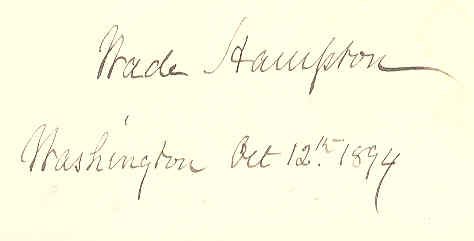 Wade Hampton
Washington Oct 12th. 1894